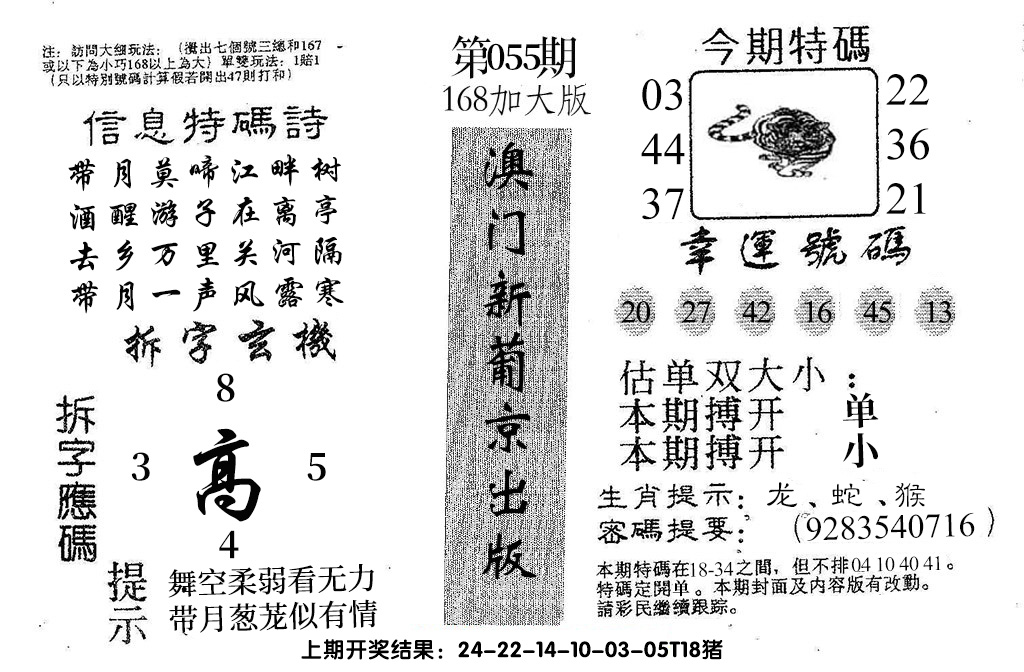 注：訪問大细玩法：（攪出七個號三總和167
或以下為小巧168以上為大）單雙玩法：1賠1
（只以特別號碼計算假若開出47則打和）
信息特碼詩
帶月莫啼江畔树
酒醒游子在离亭
去乡万里关河隔
帶月一声风露寒
拆字玄機
8
拆字應碼
3
高
5
4
提示
舞空柔弱看无力
带月葱茏似有情
第055期
168加大版
澳门新葡京出版
今期特碼
03
22
44
36
37
21
幸運號碼
20 27 42 16 45 13
估单双大小：
本期搏开 单
本期搏开 小
生肖提示：龙、蛇、猴
密碼提要：（9283540716）
本期特碼在18-34之間，但不排04 10 40 41。
特碼定開单。本期封面及内容版有改動。
請彩民繼續跟踪。
上期开奖结果：24-22-14-10-03-05T18猪